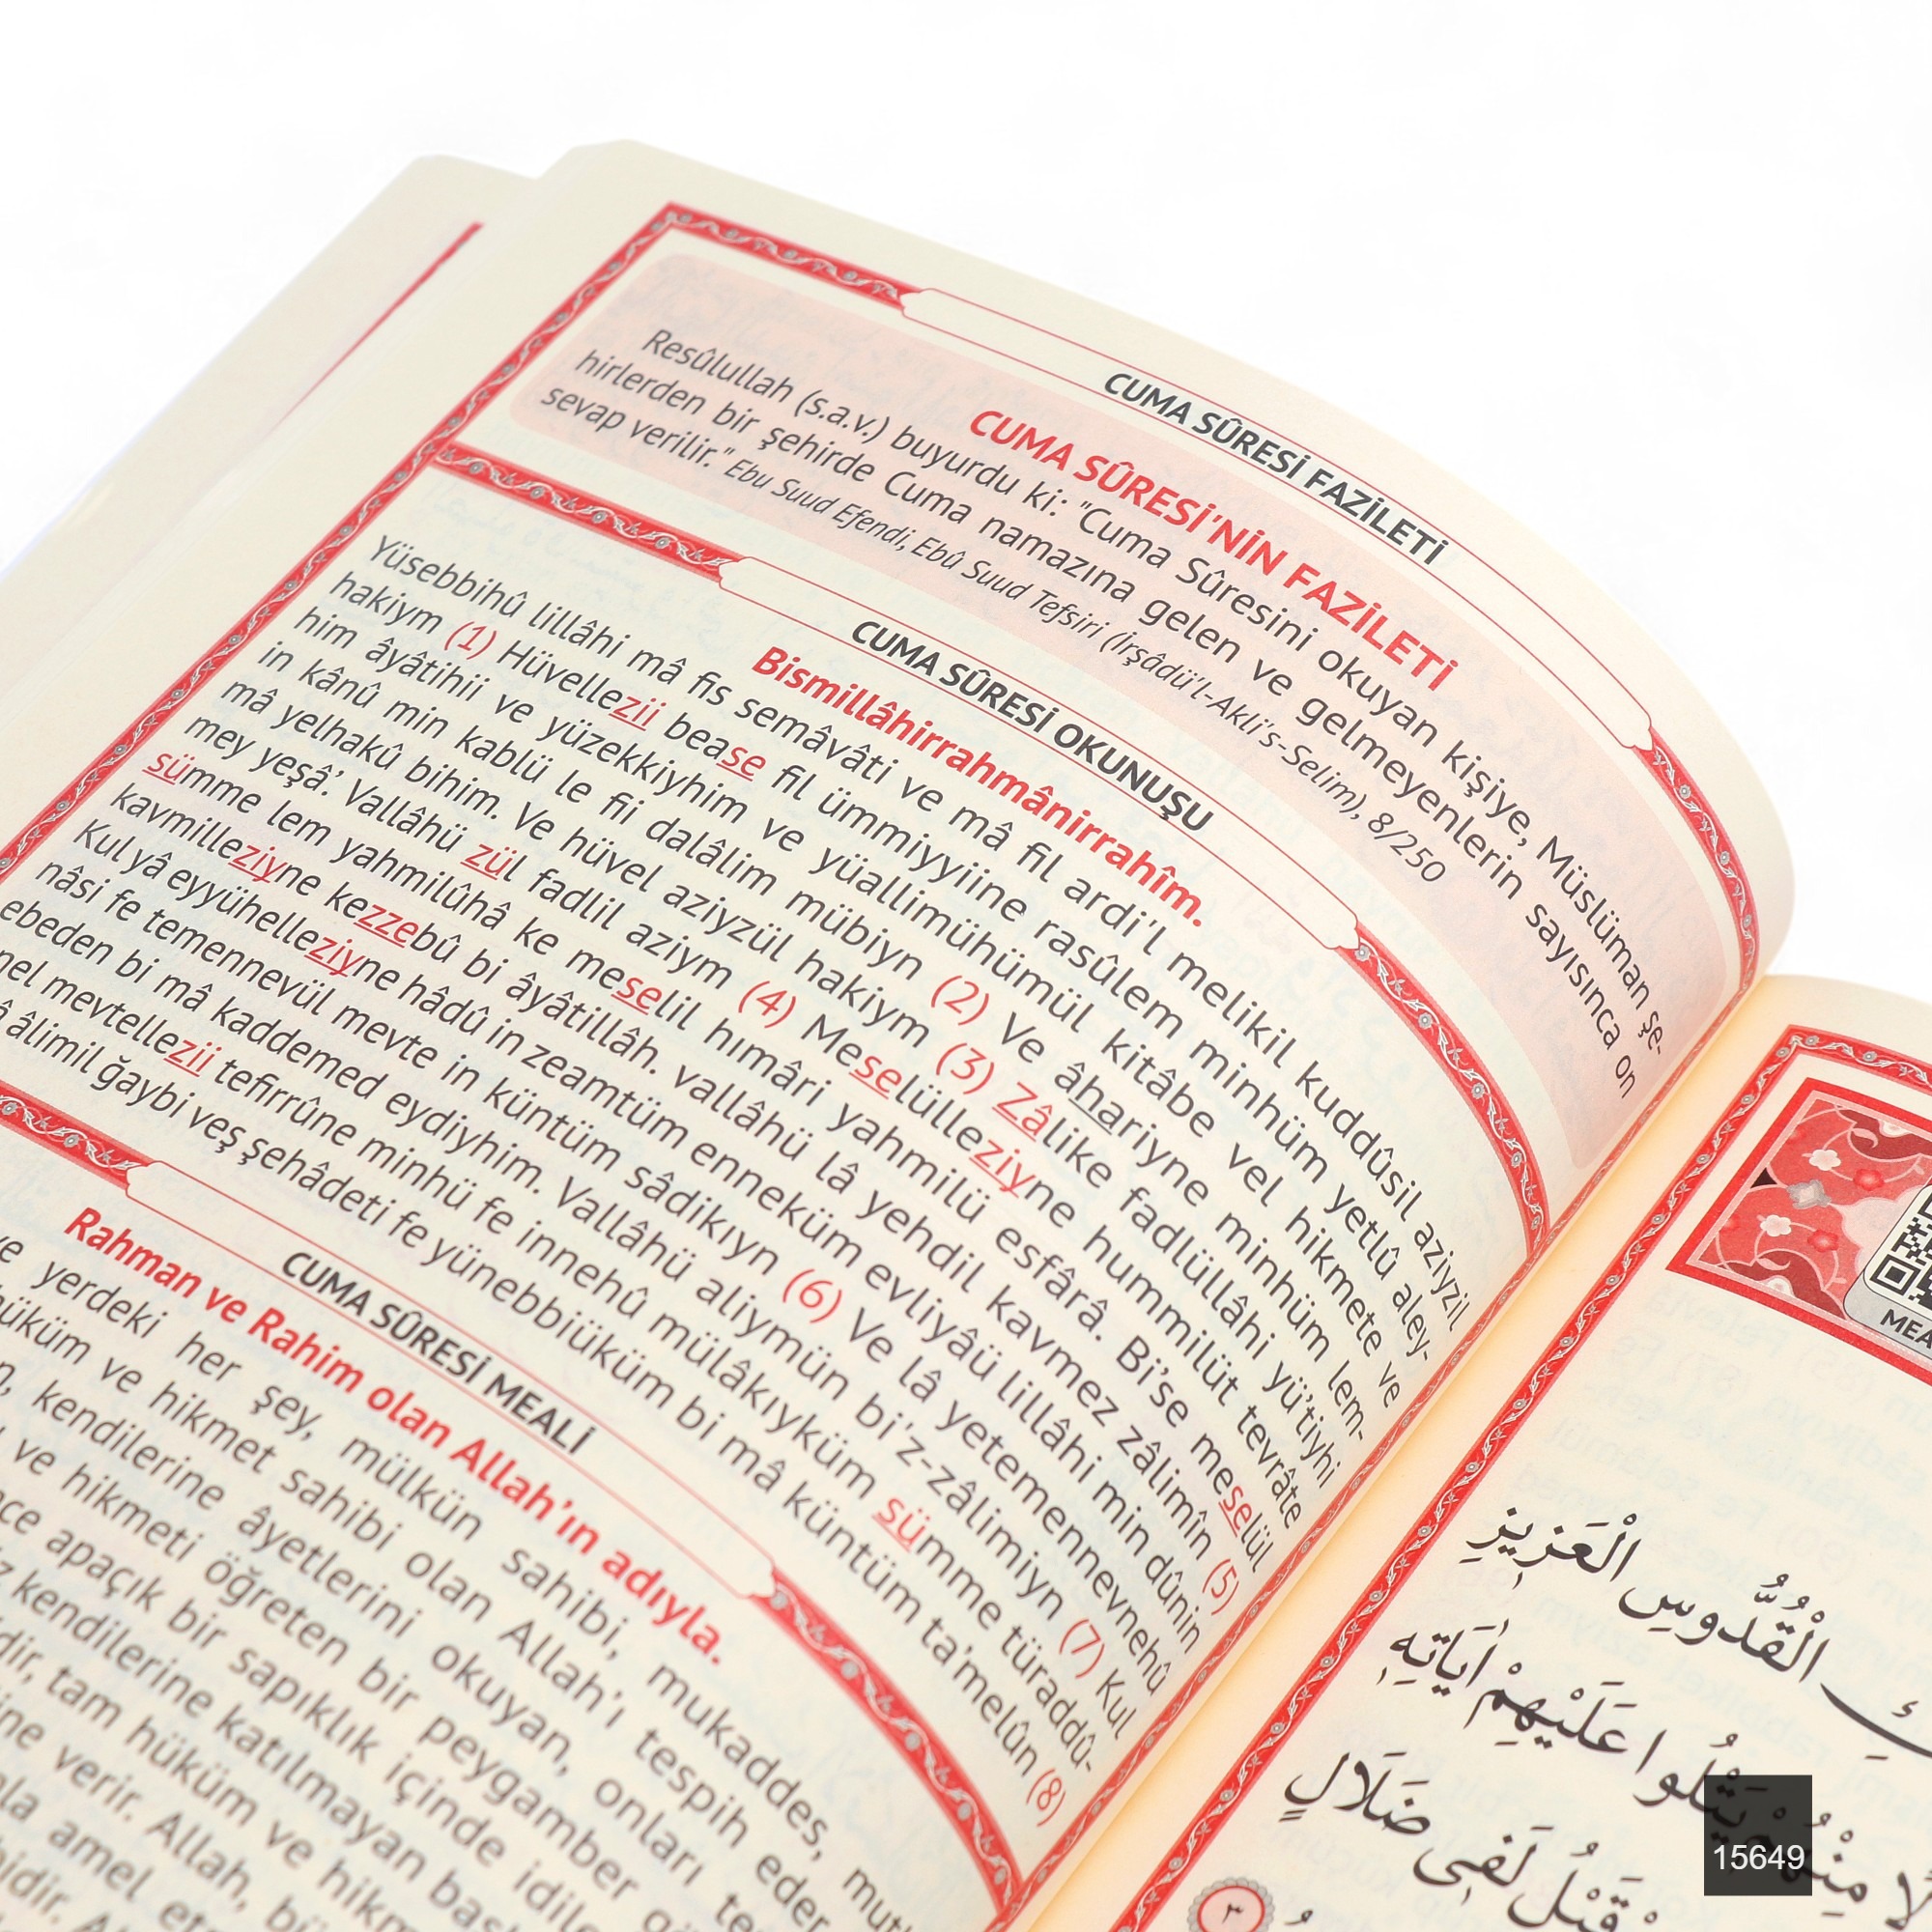 CUMA SÛRESİ FAZİLETİ
CUMA SÛRESİ'NİN FAZİLETİ
Resûlullah (s.a.v.) buyurdu ki: "Cuma Sûresini okuyan kişiye, Müslüman şe-
hirlerden bir şehirde Cuma namazına gelen ve gelmeyenlerin sayısınca on
sevap verilir." Ebu Suud Efendi, Ebû Suud Tefsiri (İrşâdü'l-Akli's-Selim), 8/250
CUMA SÛRESİ OKUNUŞU
Bismillâhirrahmânirrahîm.
Yüsebbihû lillâhi mâ fis semâvâti ve mâ fil ardi'l melikil kuddûsil aziyzil
hakiym (1) Hüvellezii bease fil ümmiyyiine rasûlem minhüm yetlû aley-
him âyâtihii ve yüzekkiyhim ve yüallimühümül kitâbe vel hikmete ve
in kânû min kablü le fii dalâlim mübiyn (2) Ve âhariyne minhüm lem-
mâ yelhakû bihim. Ve hüvel aziyzül hakiym (3) Zâlike fadlüllâhi yü'tiyhi
mey yeşâ'. Vallâhü zül fadlil aziym (4) Meselüllezi​yne hummilüt tevrâte
sümme lem yahmilûhâ ke meselil hımâri yahmilü esfârâ. Bi'se meselül
kavmilleziyne kezzebû bi âyâtillâh. vallâhü lâ yehdil kavmez zâlimîn (5)
Kul yâ eyyühelleziyne hâdû in zeamtüm enneküm evliyâü lillâhi min dûnin
nâsi fe temennevül mevte in küntüm sâdikıyn (6) Ve lâ yetemennevnehû
ebeden bi mâ kaddemed eydiyhim. Vallâhü aliymün bi'z-zâlimiyn (7) Kul
nel mevtellezii tefirrûne minhü fe innehû mülâkıyküm sümme türaddû-
âlimil ğaybi veş şehâdeti fe yünebbiüküm bi mâ küntüm ta'melûn (8)
CUMA SÛRESİ MEALİ
Rahman ve Rahim olan Allah'ın adıyla.
ve yerdeki her şey, mülkün sahibi, mukaddes,
hüküm ve hikmet sahibi olan Allah'ı tespih eder
kendilerine âyetlerini okuyan, onları
ve hikmeti öğreten bir peygamber
apaçık bir sapıklık içinde
kendilerine katılmayan
tam hüküm ve
verir. Allah,
amel
الْقُدُّوسِ الْعَزِيزِ
يَتْلُوا عَلَيْهِمْ اٰيَاتِهِ
قَبْلُ لَفِي ضَلَالٍ
٣
15649